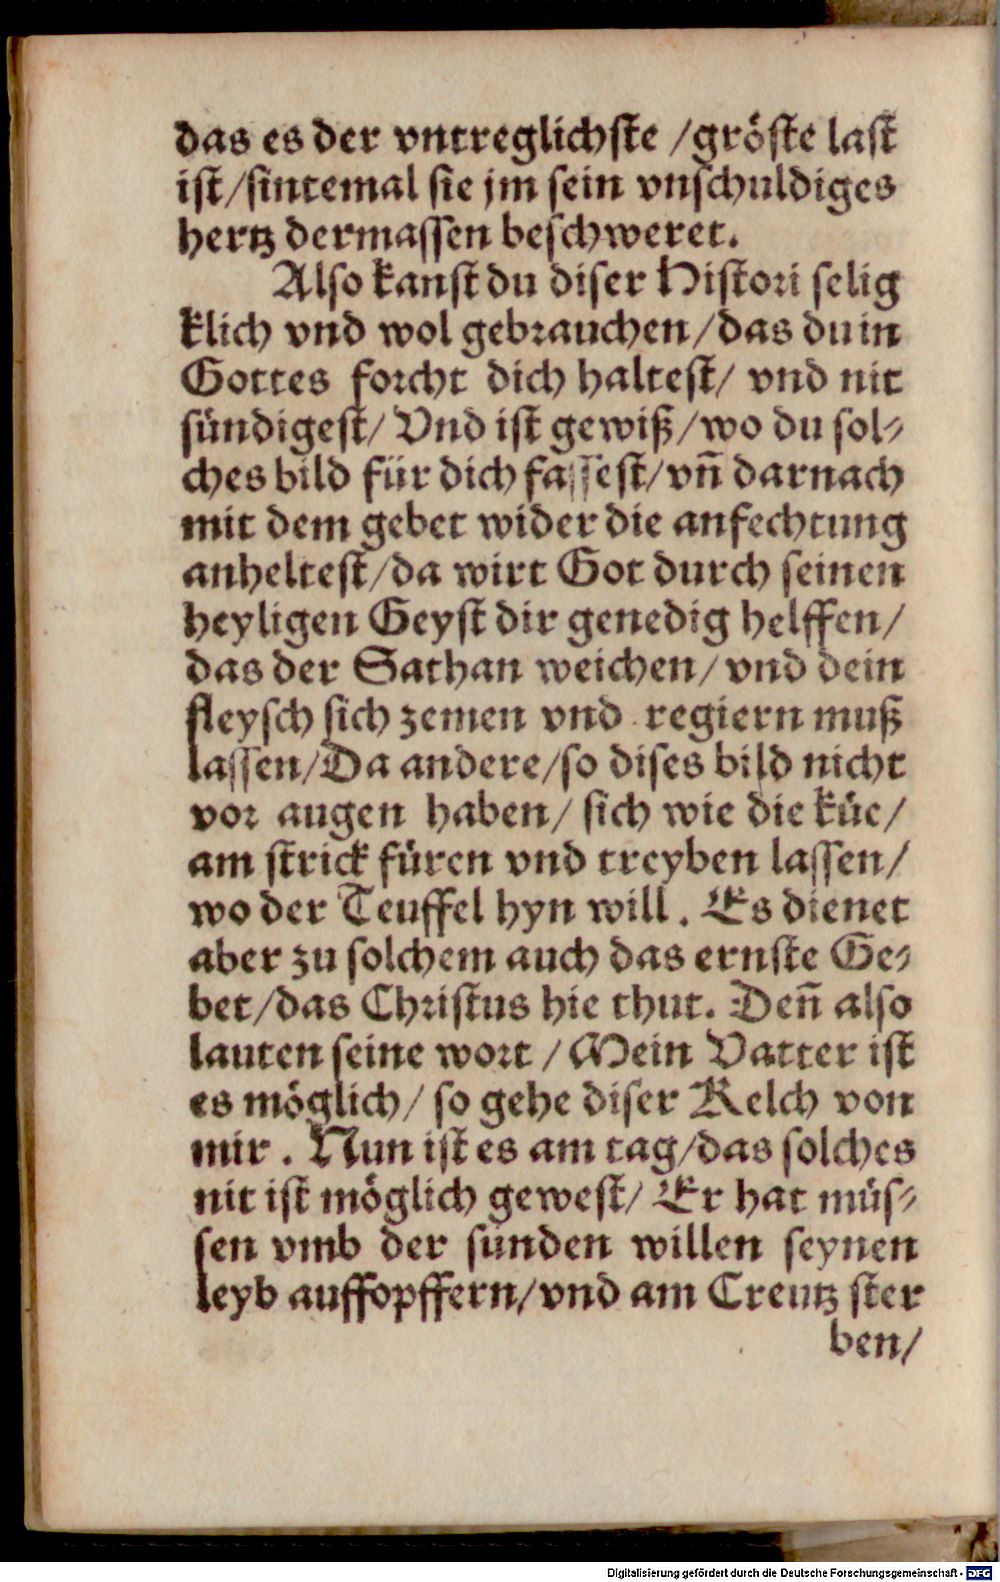 das es der vntreglichste /gröste last
ist/sintemal sie jm sein vnschuldiges
hertz dermassen beschweret.
Also kanst du diser Histori selig
klich vnd wol gebrauchen/das du in
Gottes forcht dich haltest/ vnd nit
sündigest/ Vnd ist gewiß/wo du sol-
ches bild für dich fassest/vñ darnach
mit dem gebet wider die anfechtung
anheltest/da wirt Got durch seinen
heyligen Geyst dir genedig helffen/
das der Sathan weichen/vnd dein
fleysch sich zemen vnd regiern muß
lassen/Da andere/so dises bild nicht
vor augen haben/ sich wie die küe/
am strick füren vnd treyben lassen/
wo der Teuffel hyn will. Es dienet
aber zu solchem auch das ernste Ge-
bet/das Christus hie thut. Deñ also
lauten seine wort / Mein Vatter ist
es möglich/ so gehe diser Kelch von
mir. Nun ist es am tag/das solches
nit ist möglich gewest/ Er hat müs-
sen vmb der sünden willen seynen
leyb auffopffern/vnd am Creutz ster
ben/
Digitalisierung gefördert durch die Deutsche Forschungsgemeinschaft - DFG